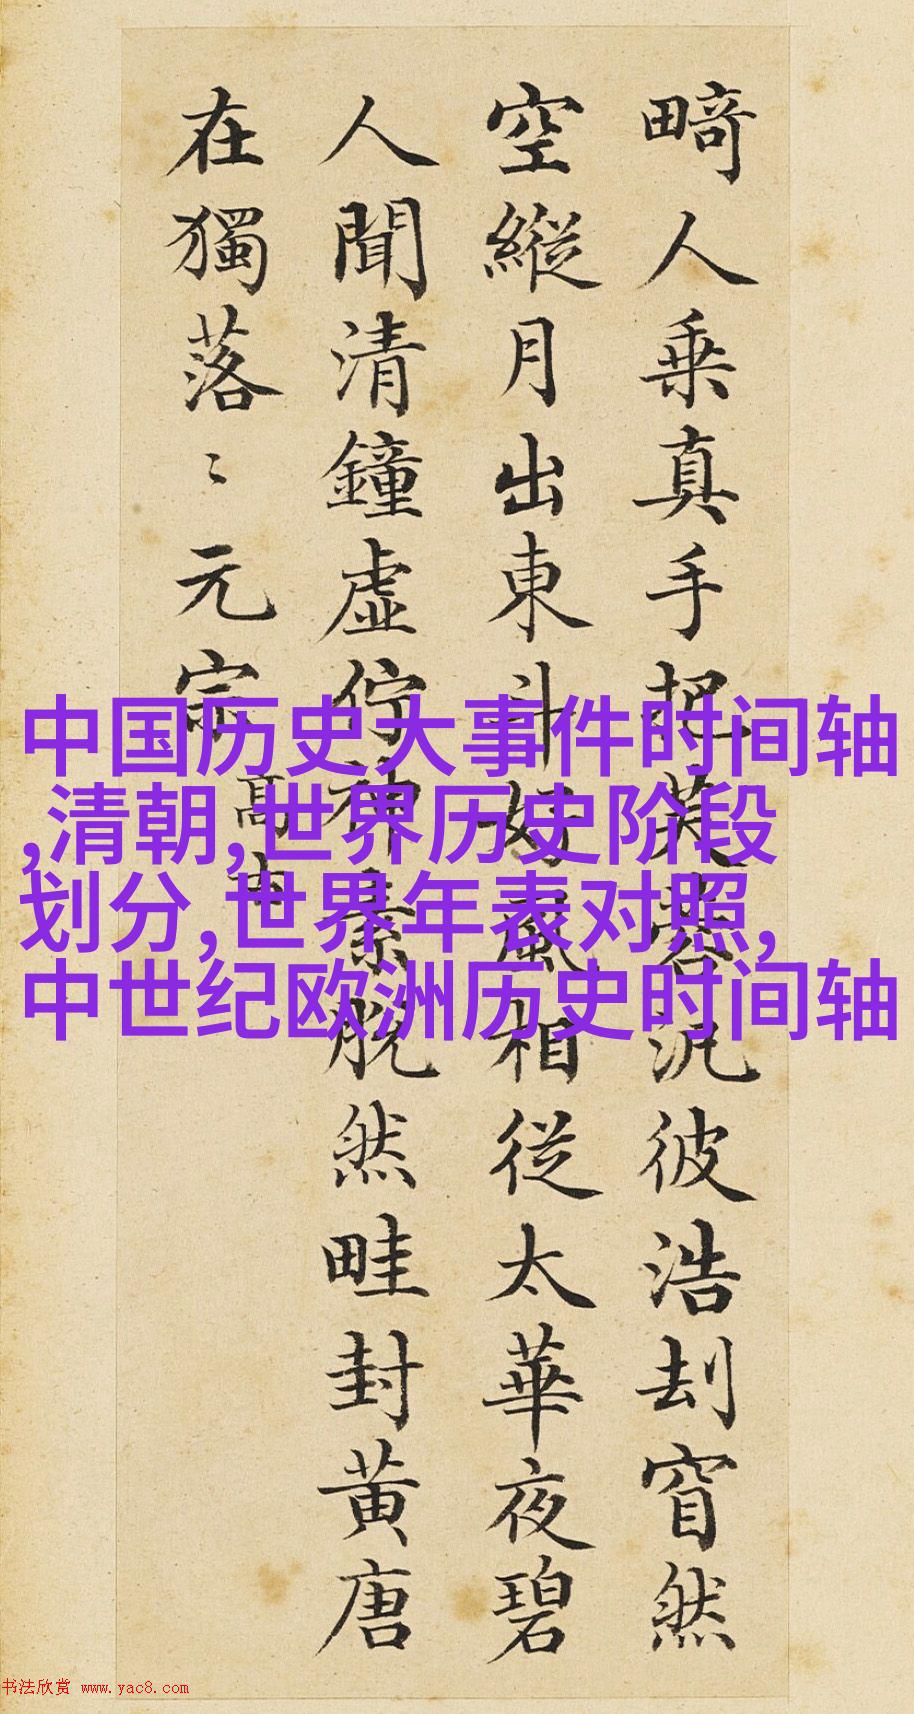 畸人乗真手把芙蓉汎彼浩刦窅然
空縱月出東斗好風相從太華夜碧
人聞清鐘虛佇神素脫然畦封黃唐
在獨落〻元宗
高
中国历史大事件时间轴
,清朝,世界历史阶段
划分,世界年表对照,
中世纪欧洲历史时间轴
书法欣赏 www.yac8.com